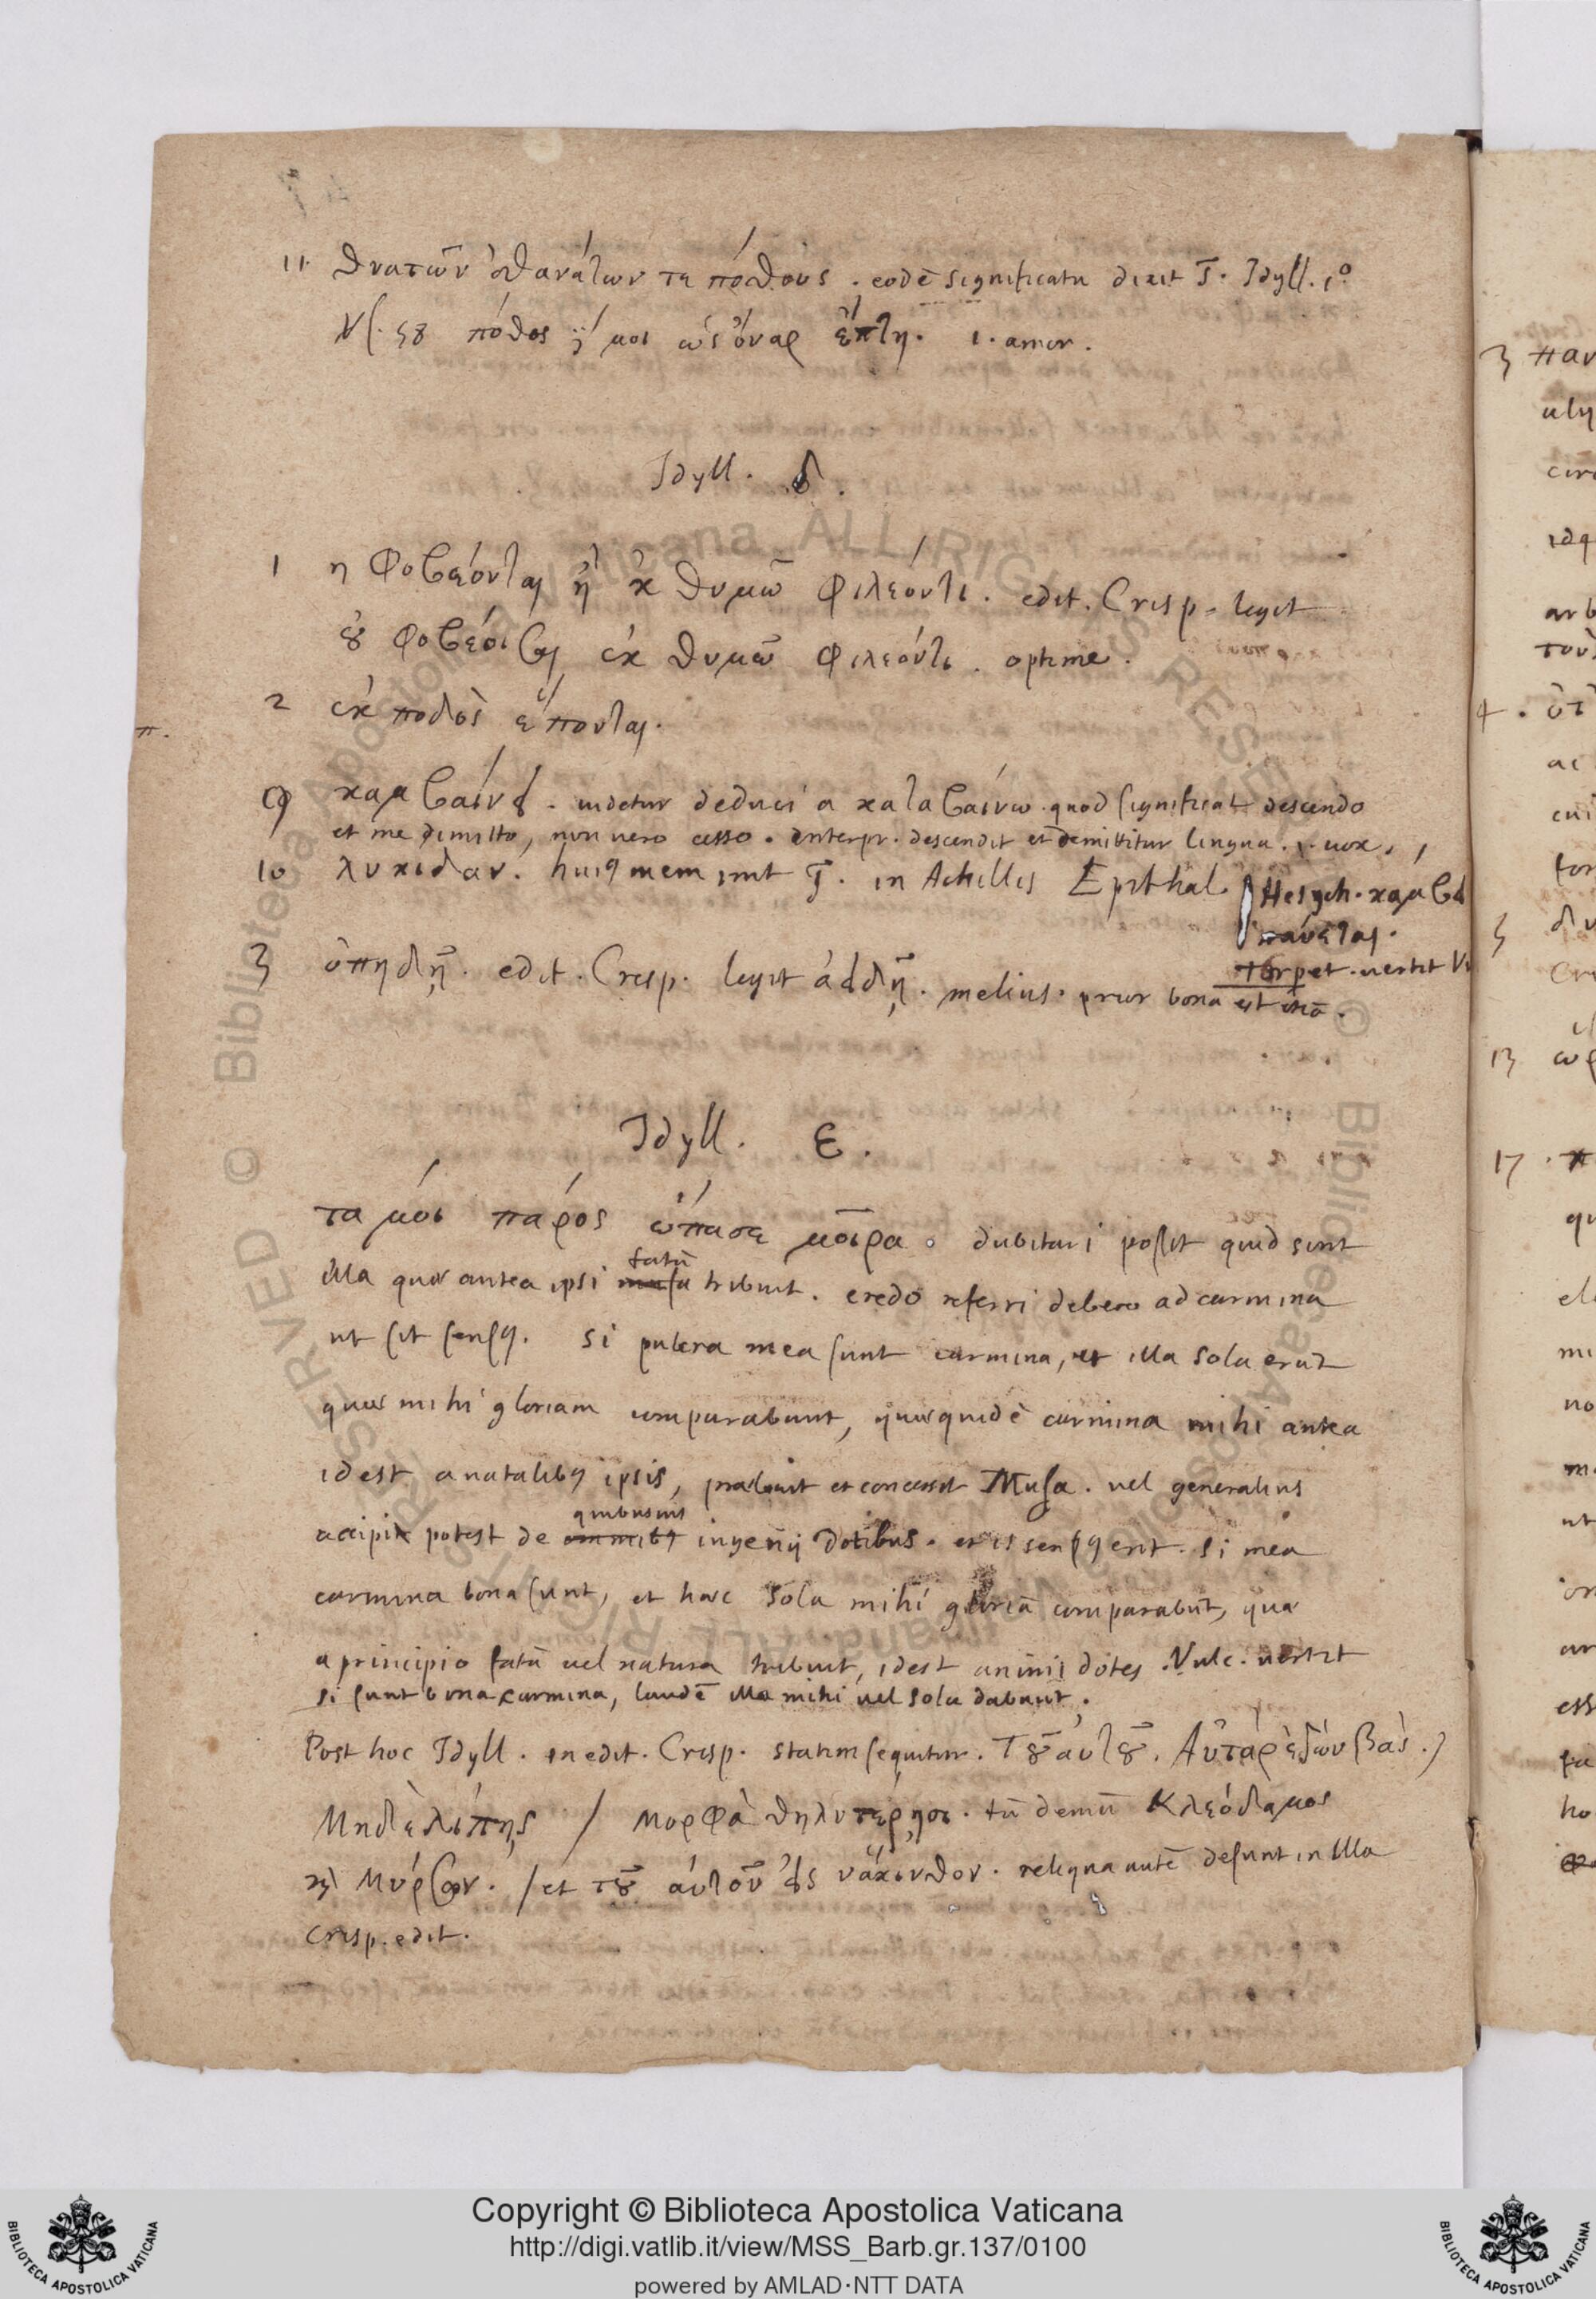 11. θνατῶν ἀθανάτων τε πόθους. eodē significatu dixit T. Idyll. 1°
πόθος μοι ὡς ὄναρ ἔπτη. i. amor.
Idyll. δ.
1 η φοβέονται ἢ ἐκ θυμῶ φιλέοντι. edit. Crisp. legit
ȣ̓ φοβέοισαι ἐκ θυμῶ φιλέοντι. optime.
2 ἐκ ποδὸς ἕπονται.
π.
9 καμβαίνει. uidetur deduci a καταβαίνω quod significat descendo
et me dimitto, non uero cesso. interpr. descendit et demittitur lingua. i. uox.
10 λυκιδαν. huiꝯ meminit T. in Achillis Epithal.
Hesych. καμβα
παύεται.
Torpet. uertit
3 ὀπηδῇ. edit. Crisp. legit ἀδδῇ. melius. prior bona est etiā.
Idyll. ε.
τα μόι πάρος ὤπασε μοῖρα. dubitari possit quid sint
illa quae antea ipsi fatū musa tribuit. credo referri debere ad carmina
ut sit sensꝯ. Si pulcra mea sunt carmina, et illa sola erūt
quae mihi gloriam comparabunt, quae quidē carmina mihi antea
idest a natalibꝯ ipsis, praebuit et concessit Musa. uel generalius
accipi potest de quibusuis omnibꝯ ingenij dotibus. et is sensꝯ erit. si mea
carmina bona sunt, et haec sola mihi gloriā comparabūt, quae
a principio fatū uel natura tribuit, idest animi dotes. Vulc. uertit
si sunt bona carmina, laudē illa mihi uel sola dabunt.
Post hoc Idyll. in edit. Crisp. statim sequitur. Τȣ͂ αὐτȣ͂.
Μηδὲ λίπῃς / Μορφὰ θηλυτέρῃσι. tū demū Κλεόδαμος
κὶ Μύρσων. / et τȣ͂ αὐτοῦ εἰς ὑάκινθον. reliqua autē desunt in illa
Crisp. edit.
Copyright © Biblioteca Apostolica Vaticana
http://digi.vatlib.it/view/MSS_Barb.gr.137/0100
powered by AMLAD·NTT DATA